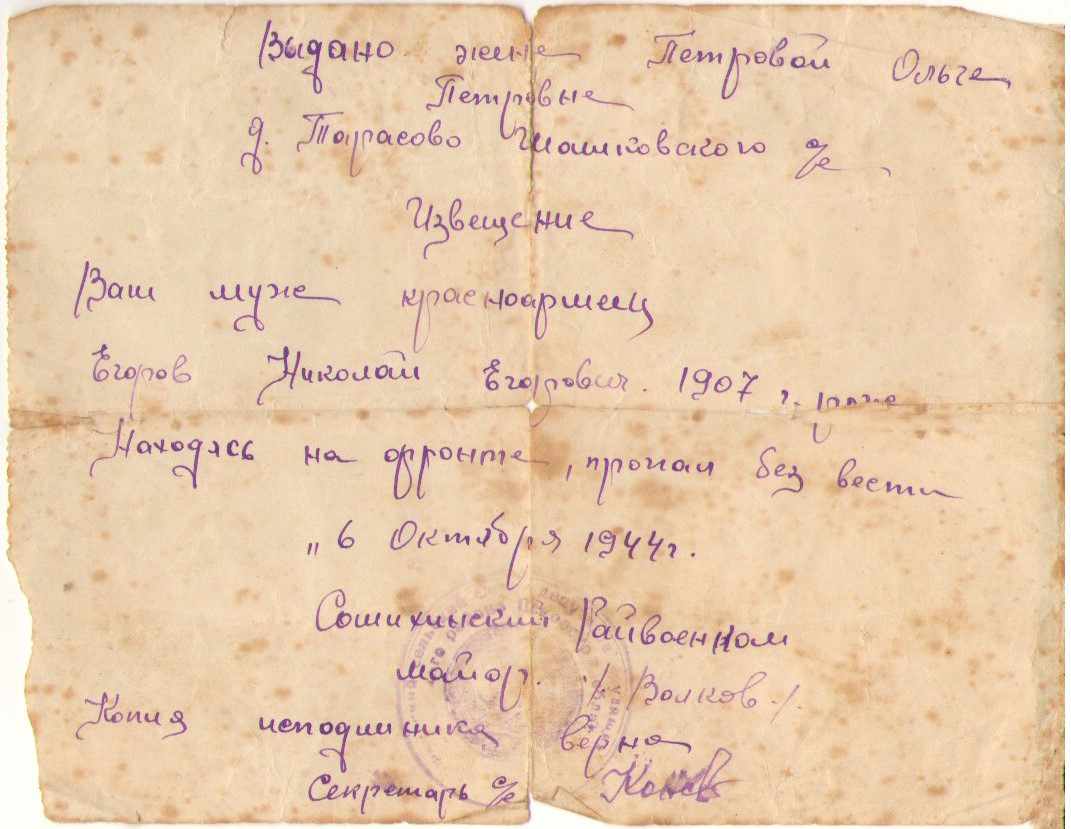 Выдано жене Петровой Ольге
Петровне
д. Тарасово Шашковского с/с
Извещение
Ваш муже красноармеец
Егоров Николай Егорович. 1907 г.
Находясь на фронте, пропал без вести
„6 Октября 1944г.
Сошихинский Райвоенком
майор. /Волков/.
Копия исподлиника верна
Секретарь с/с